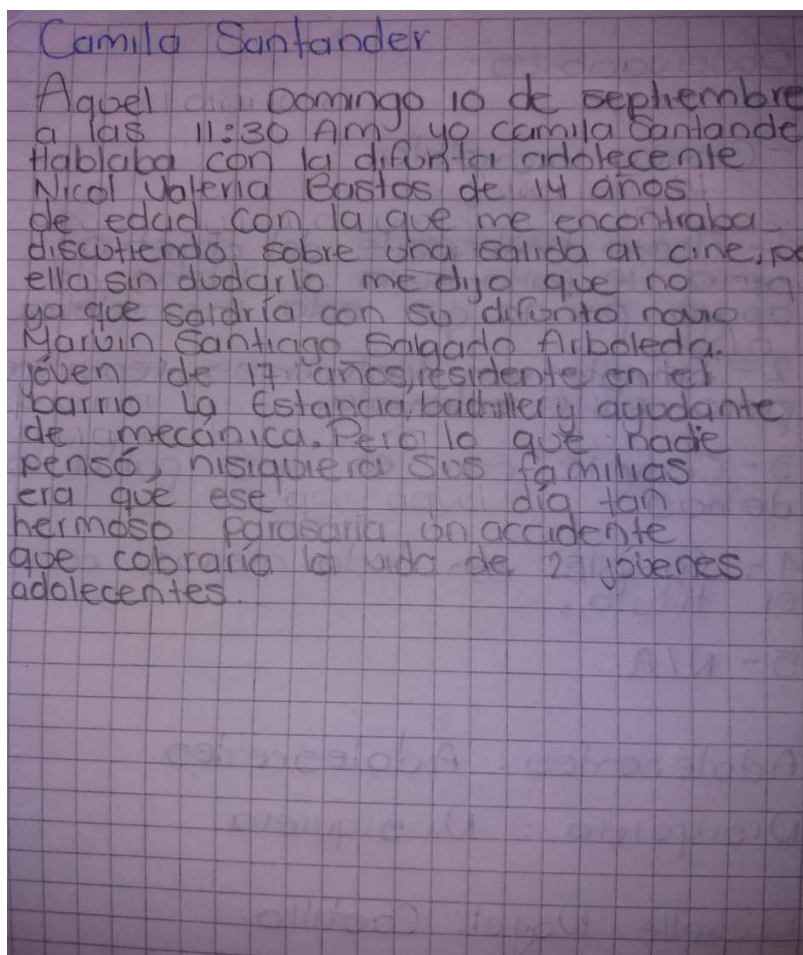 Camila Santander
Aquel Domingo 10 de septiembre
a las 11:30 Am yo camila Santande
Hablaba con la difunta adolecente
Nicol Valeria Bastos de 14 años
de edad con la que me encontraba
discutiendo sobre una salida al cine, pe
ella sin dudarlo me dijo que no
ya que saldría con su difunto novio
Marvin Santiago Salgado Arboleda.
jóven de 17 años, residente en el
barrio La Estancia, bachiller y ayudante
de mecánica. Pero lo que nadie
pensó, nisiquiera sus familias
era que ese día tan
hermoso parasaria un accidente
que cobraria la vida de 2 jóvenes
adolecentes.